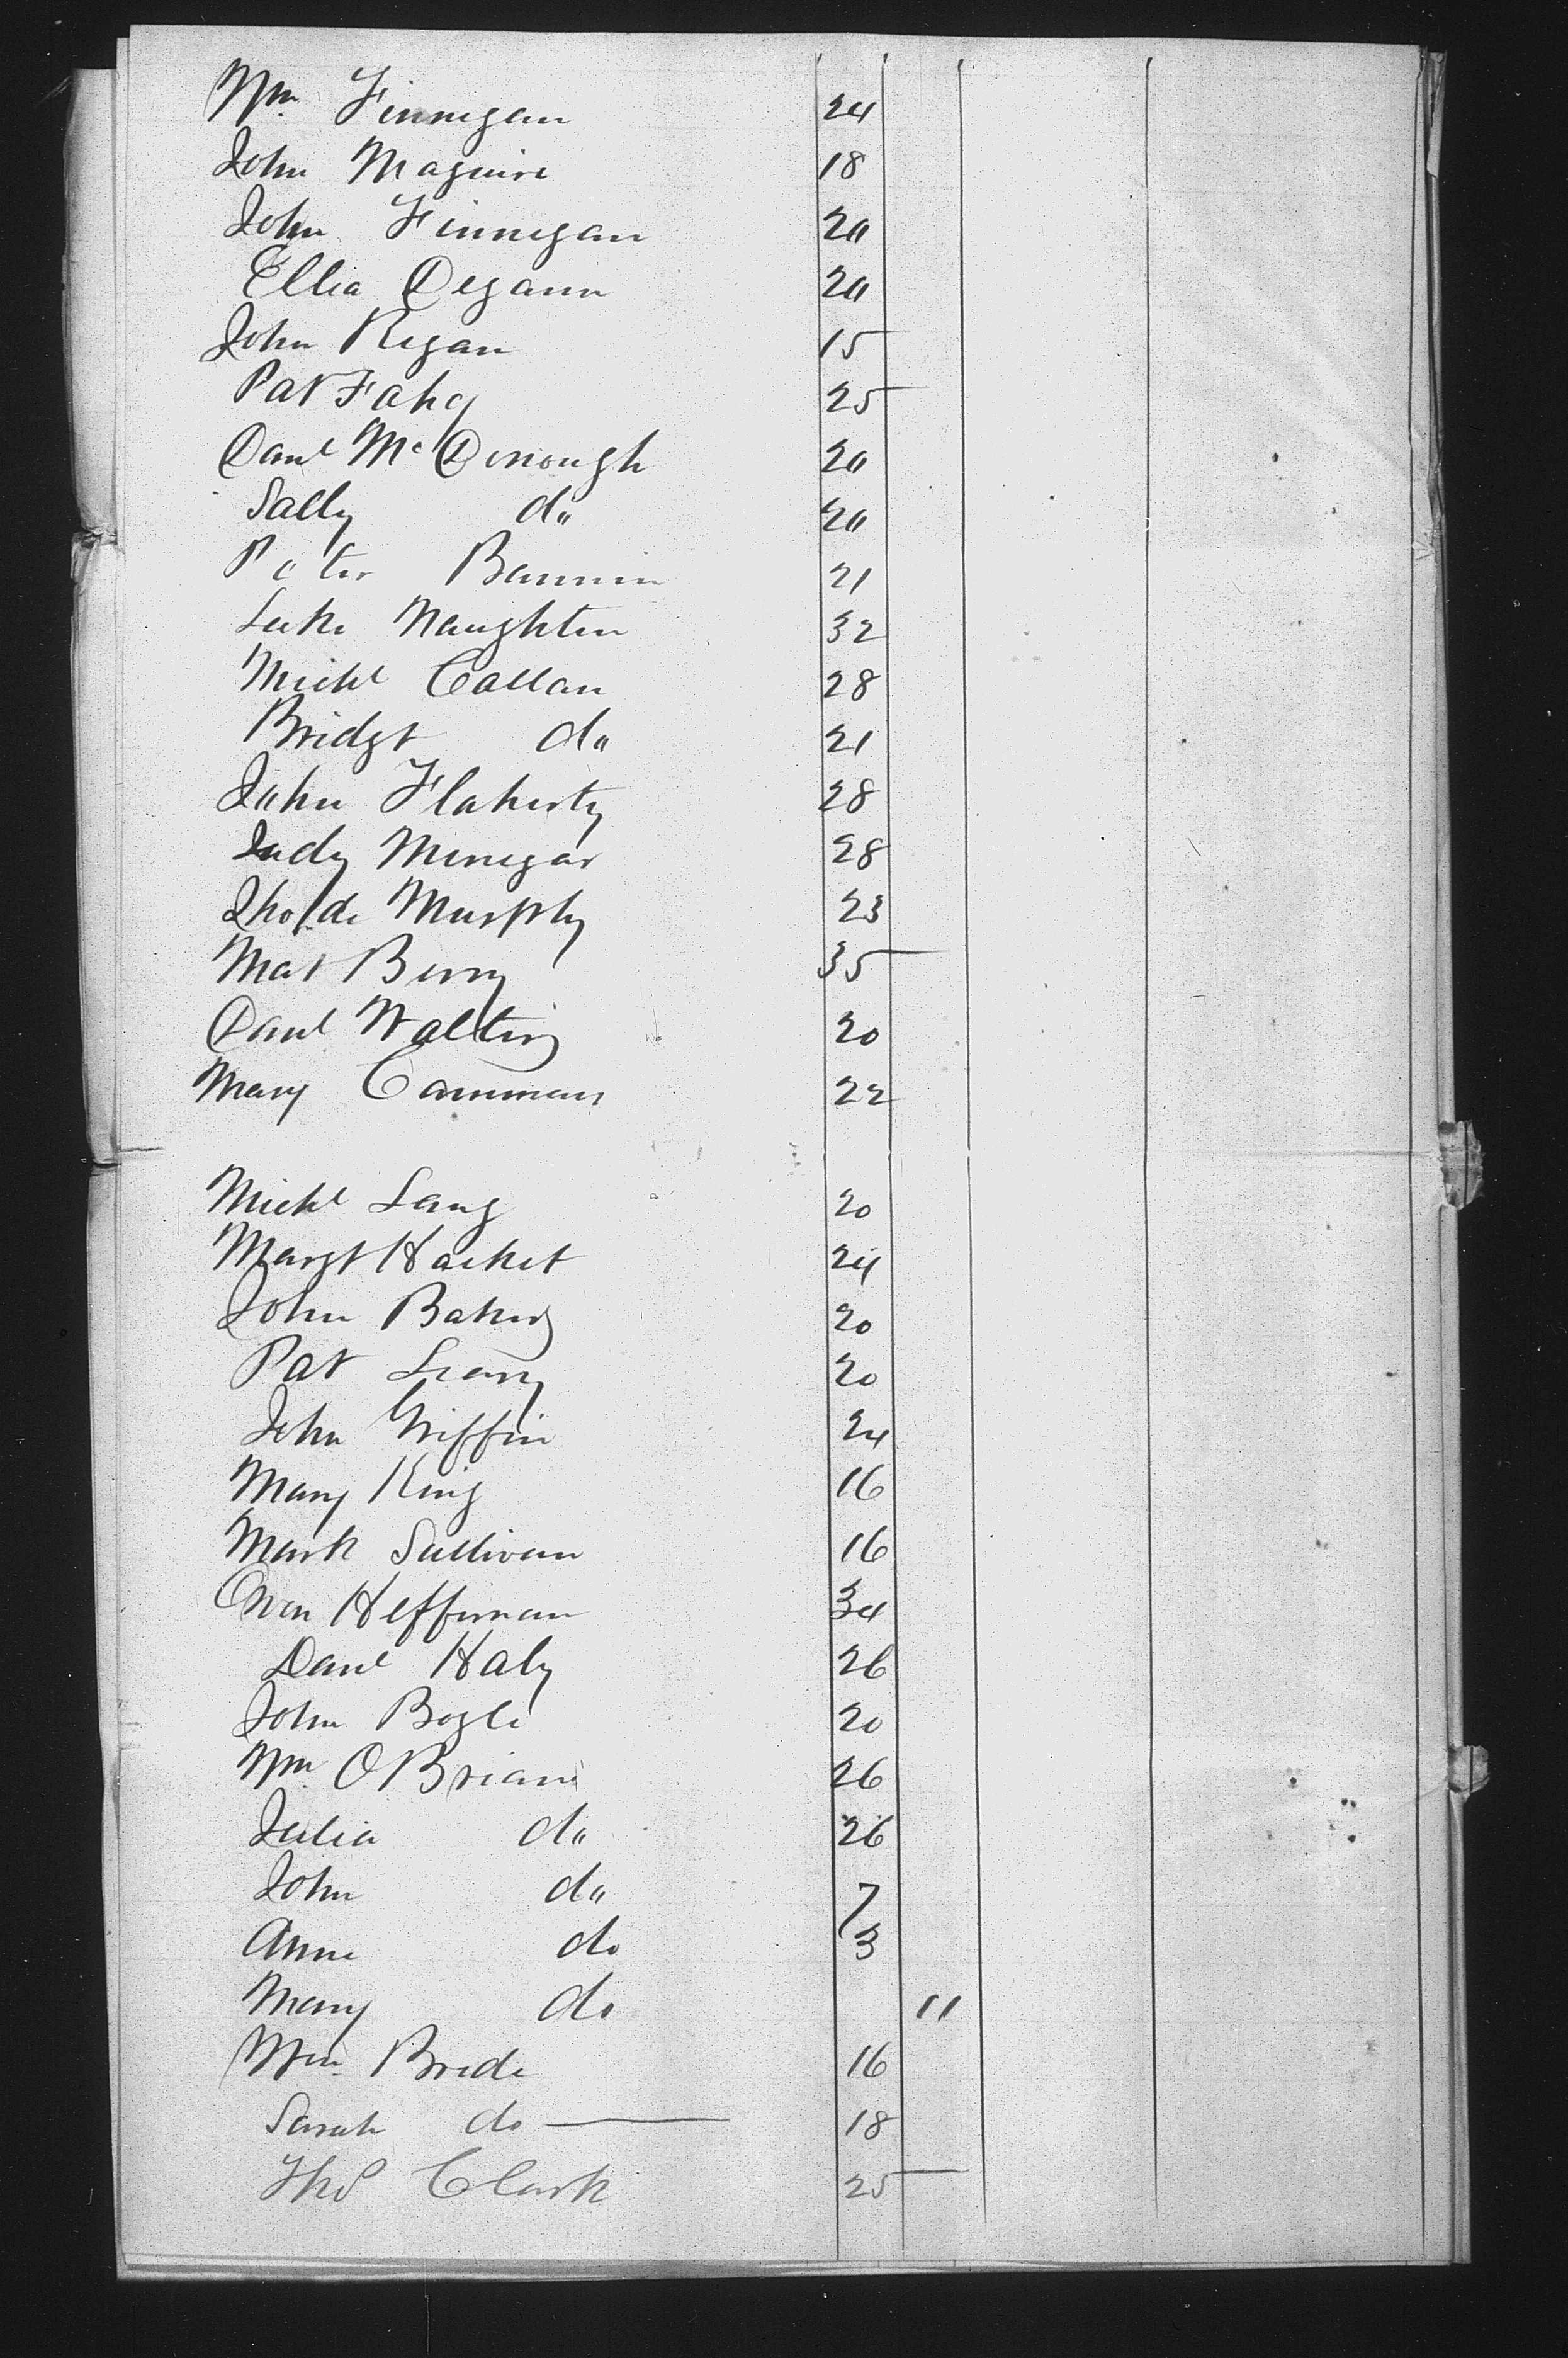 Wm. Finnegan 24
John Maguire 18
John Finnegan 20
Ellia Degann 20
John Regan 15
Pat Fahy 25
Danl McDonough 20
Sally do 20
Peter Bannin 21
Luke Naughten 32
Michl Callan 28
Bridgt do 21
John Flaherty 28
Judy Minegar 28
Murphy 23
Mat Berry 35
Danl Walters 20
Mary Cammans 22
Michl Lang 20
Margt Hacket 24
John Baker 20
Pat Leary 20
John Griffin 24
Mary King 16
Mark Sullivan 16
Owen Heffernan 34
Danl Haly 26
John Bogle 20
Wm. O Brian 26
Julia do 26
John do 7
Anne do 3
Mary do 11
Wm. Bride 16
Sarah do 18
Thos Clark 25